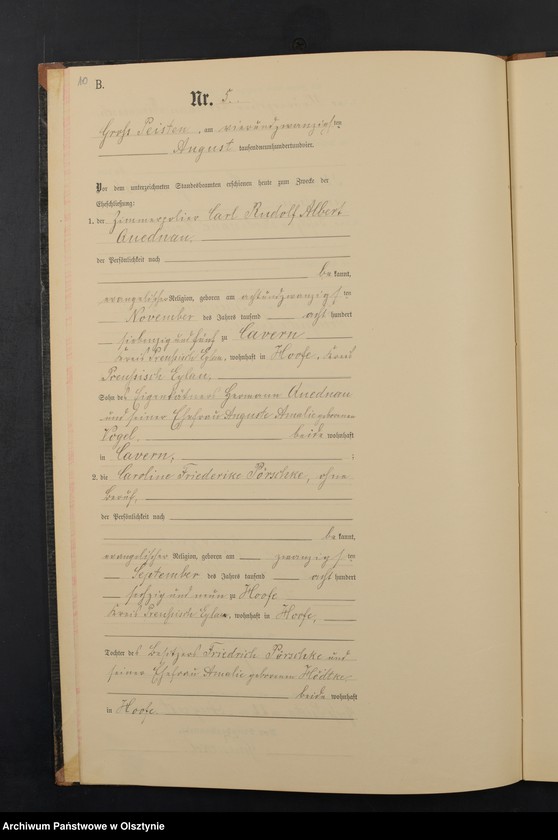 10 B.
Nr. 5.
Groß Peisten, am vierundzwanzigsten
August tausendneunhundertundvier.
Vor dem unterzeichneten Standesbeamten erschienen heute zum Zwecke der
Eheschließung:
1. der Zimmerpolier Carl Rudolf Albert
Anednau,
der Persönlichkeit nach
bekannt,
evangelischer Religion, geboren am achtundzwanzigsten
November des Jahrs tausend achthundert
siebenzig und fünf zu Cavern
Kreis Preußisch Eylau, wohnhaft in Hoofe, Kreis
Preußisch Eylau,
Sohn des Eigenkätners Hermann Anednau
und seiner Ehefrau Auguste Amalie geborenen
Vogel, beide wohnhaft
in Cavern, ;
2. die Caroline Friederike Pörschke, ohne
Beruf,
der Persönlichkeit nach
bekannt,
evangelischer Religion, geboren am zwanzigsten
September des Jahrs tausend achthundert
sechzig und neun zu Hoofe
Kreis Preußisch Eylau, wohnhaft in Hoofe,
Tochter des Besitzers Friedrich Pörschke und
seiner Ehefrau Amalie geborenen Hödtke,
beide wohnhaft
in Hoofe
Archiwum Państwowe w Olsztynie